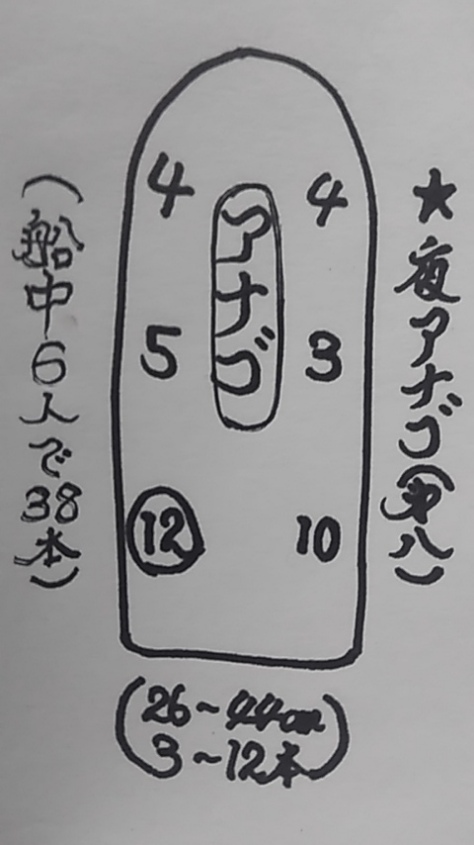 ★夜アナゴ(第八)
アナゴ
4 4
5 3
⑫ 10
(船中6人で38本)
(26~44cm
3~12本)